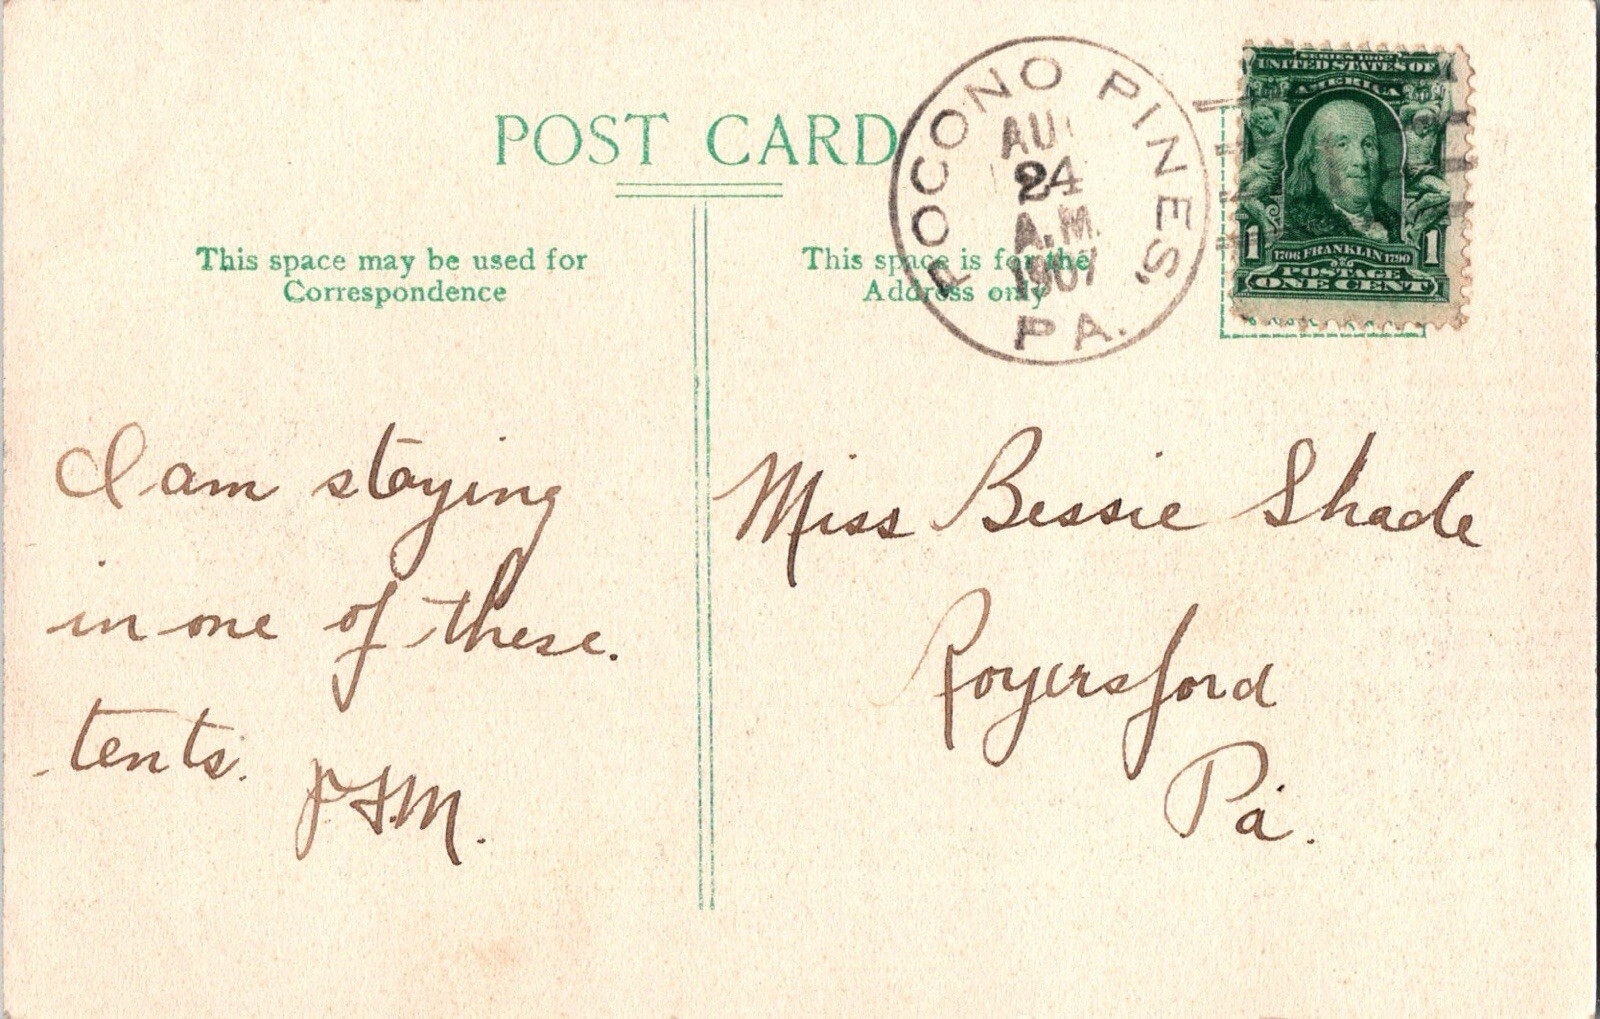 POST CARD
This space may be used for
Correspondence
This space is for the
Address only
POCONO PINES,
PA.
AU
24
A.M.
1907
SERIES 1902
UNITED STATES OF
AMERICA
1 1
1706 FRANKLIN 1790
POSTAGE
ONE CENT
I am staying
in one of these.
tents.
Miss Bessie Shade
Royersford
Pa.